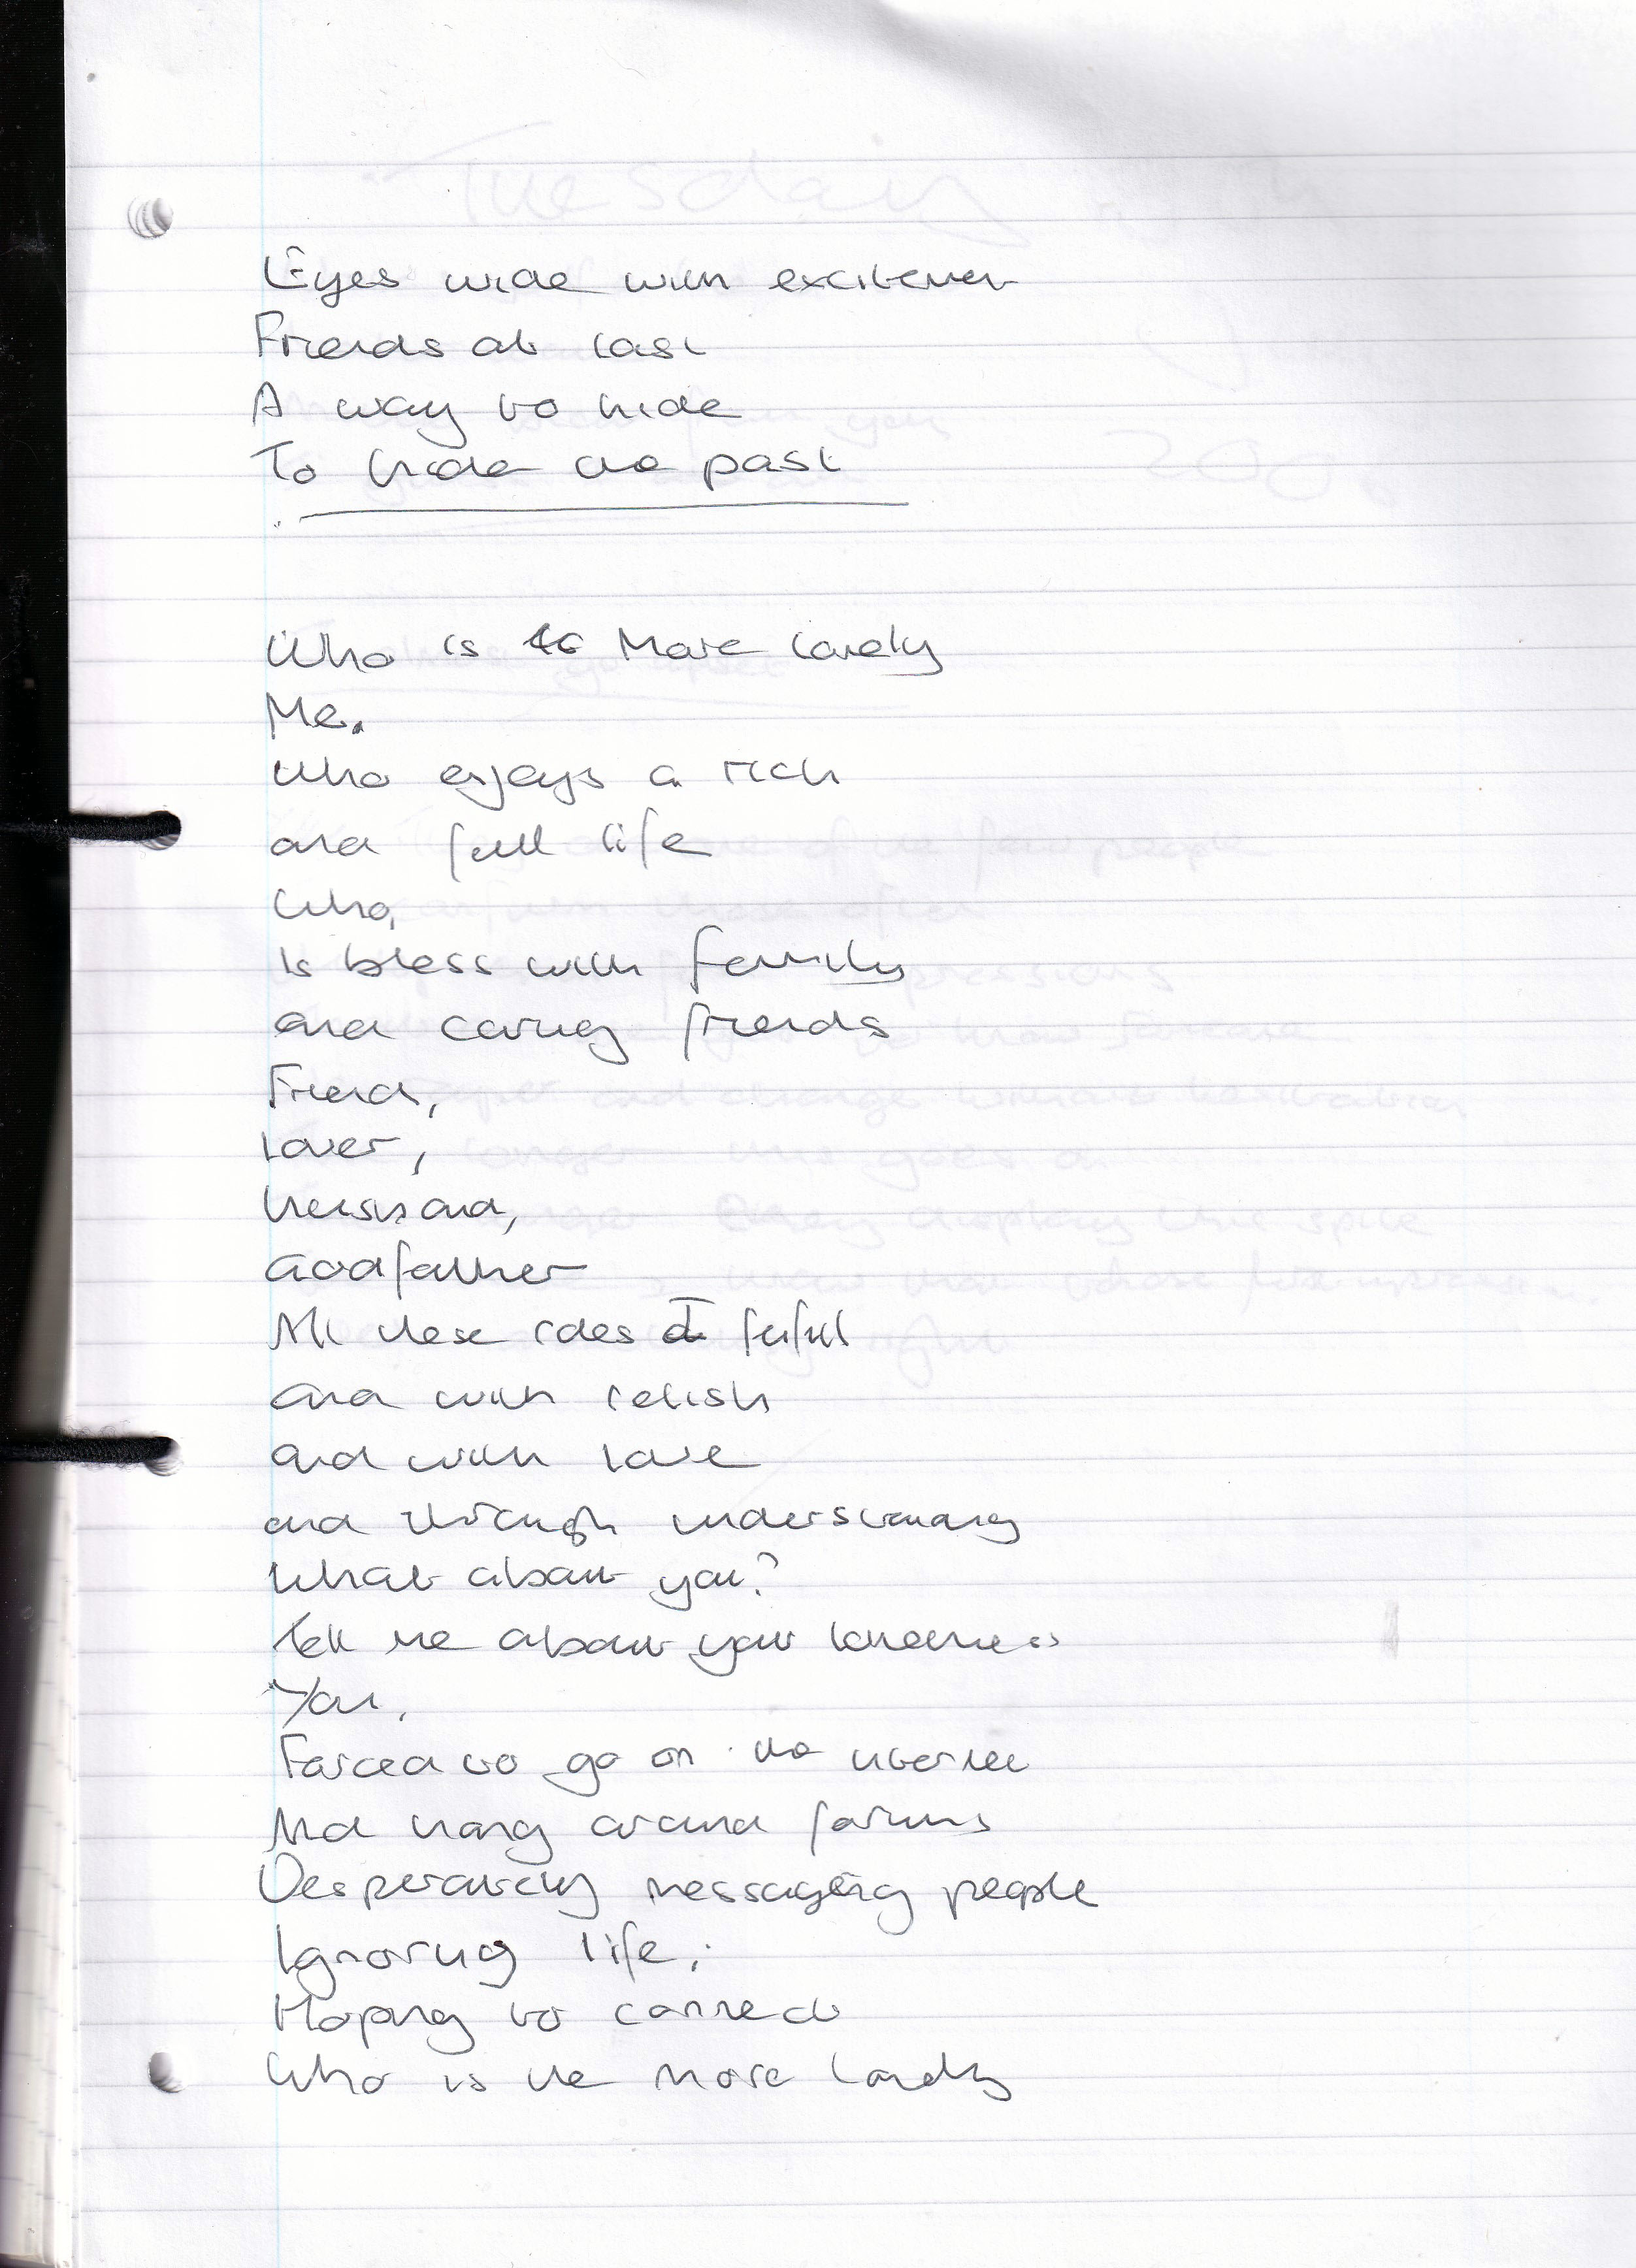 Eyes wide with excitement
Friends at last
A way to hide
To hide the past
Who is more lonely
Me.
Who enjoys a rich
and full life
Who,
Is bless with family
and caring friends
Friend,
Lover,
husband,
Godfather
All these roles I fulfil
and with relish
and with love
and through understanding
What about you?
Tell me about your loneliness
You,
Forced to go on the internet
And hang around forums
Desperately messaging people
Ignoring life,
Hoping to connect
Who is the more lonely